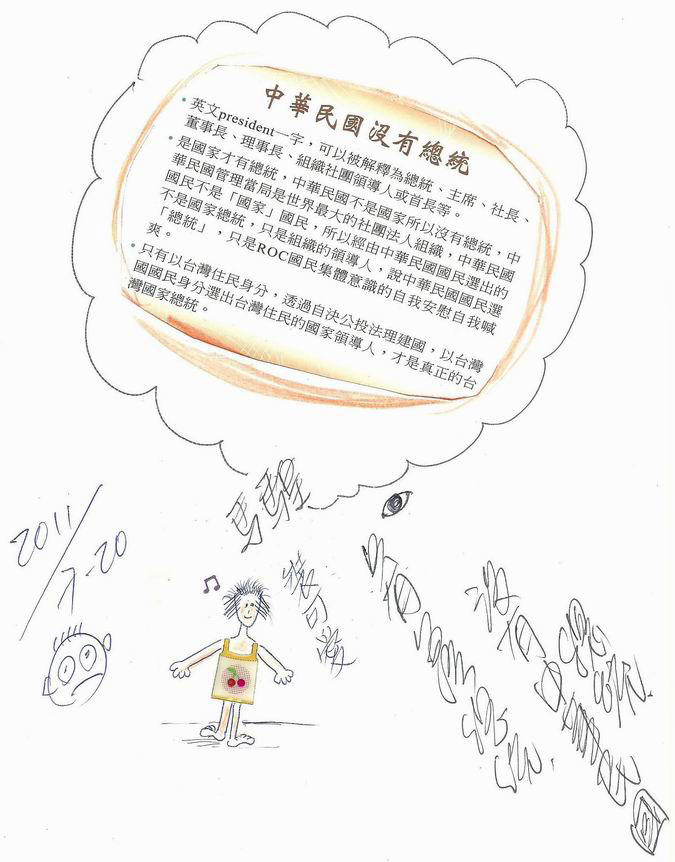 中華民國沒有總統
• 英文president一字，可以被解釋為總統、主席、社長、
董事長、理事長、組織社團領導人或首長等。
• 是國家才有總統，中華民國不是國家所以沒有總統，中
華民國管理當局是世界最大的社團法人組織，中華民國
國民不是「國家」國民，所以經由中華民國國民選出的
不是國家總統，只是組織的領導人，說中華民國國民選
「總統」，只是ROC國民集體意識的自我安慰自我喊
爽。
• 只有以台灣住民身分，透過自決公投法理建國，以台灣
國國民身分選出台灣住民的國家領導人，才是真正的台
灣國家總統。
2011/7-20
裝可愛
沒有中華民國
總統.